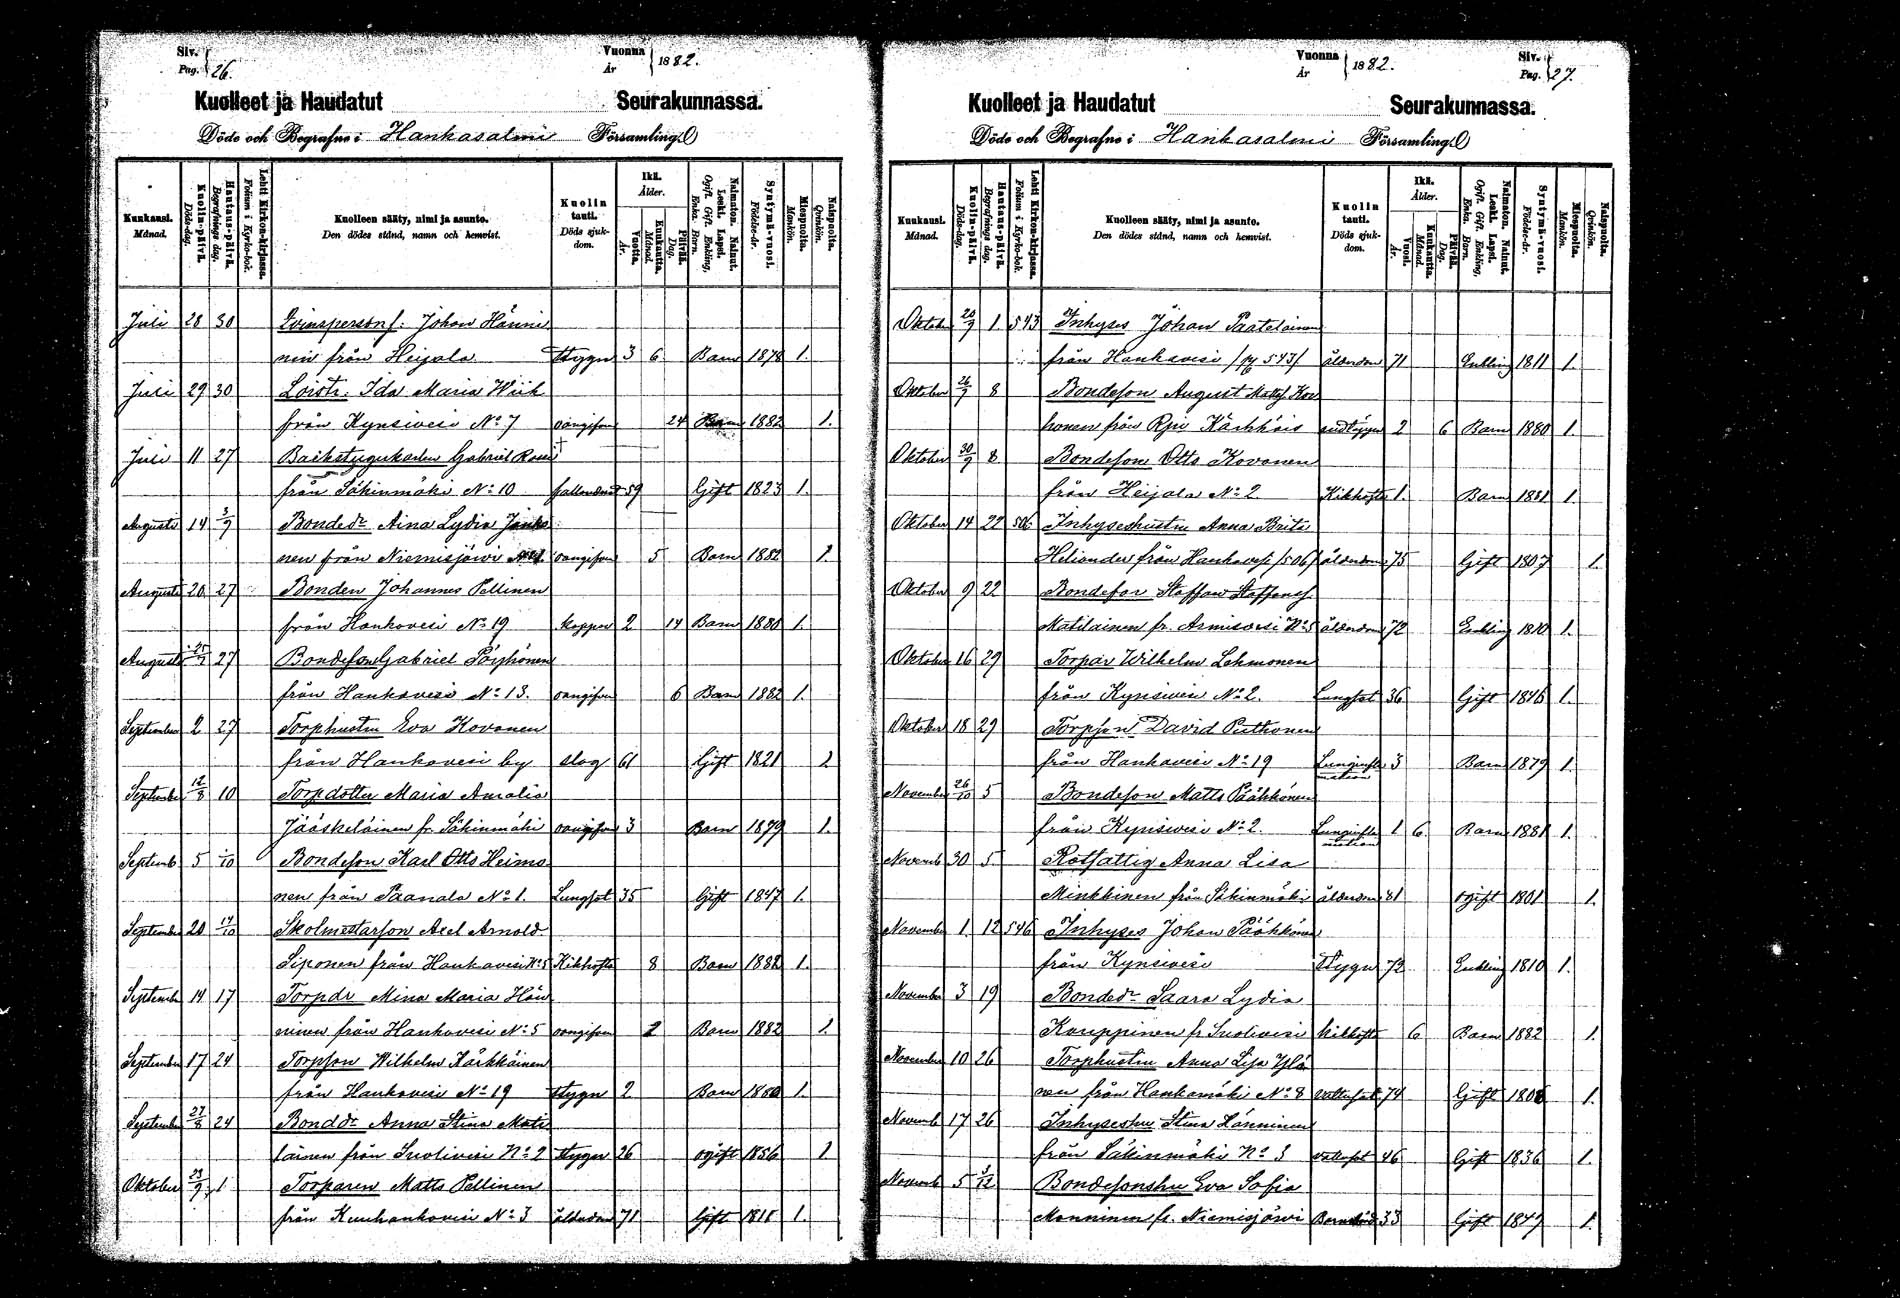 Siv. Pag. 26.
Vuonna År 1882.
Kuolleet ja Haudatut Seurakunnassa.
Döde och Begrafne i Hankasalmi Församling.
Kuukausi. Månad.
Kuolin-päivä. Döds-dag.
Hautaus-päivä. Begrafnings dag.
Lehti Kirkon-kirjassa. Folium i Kyrko-bok.
Kuolleen sääty, nimi ja asunto. Den dödes stånd, namn och hemvist.
Kuolin tauti. Döds sjuk-dom.
Ikä. Ålder.
Vuotta. År.
Kuukautta. Månad.
Päivää. Dag.
Naimaton. Nainut. Leski. Lapsi. Ogift. Gift. Enkling. Enka. Barn.
Syntymä-vuosi. Födelse-år.
Miespuolta. Mankön.
Naispuolta. Qvinkön.
Juli 28 30 Johan Hänni
nen från Heijala 3 6 Barn 1878 1.
Juli 29 30 Loisdr. Ida Maria Wiik
från Kynsivesi No 7 oangifven 24 Barn 1882 1.
Juli 11 27 Backstugukarlen Gabriel
från Säkinmäki No 10 fallandesot 59 Gift 1823 1.
Augusti 14 3/9 Bondedr Aina Lydia
nen från Niemisjärvi oangifven 5 Barn 1882 1.
Augusti 20 27 Bonden Johannes Pellinen
från Hankavesi No 19 koppor 2 14 Barn 1880 1.
Augusti 27 Bondeson Gabriel Pöyhönen
från Hankavesi No 13. oangifven 6 Barn 1882 1.
September 2 27 Torphustru Eva Kovanen
från Hankavesi by slag 61 Gift 1821
September 12/8 10 Torpdotter Maria Amalia
Jääskeläinen fr. Säkinmäki oangifven 3 Barn 1879 1.
Septemb 5 1/10 Bondeson Karl Otto Heimo
nen från Paanala No 1. Lungsot 35 Gift 1847 1.
September 20 14/10 Skolmästarson Axel Arnold
Siponen från Hankavesi No 5 Kikhosta 8 Barn 1882 1.
September 14 17 Torpdr Mina Maria Hän
ninen från Hankavesi No 5 oangifven 2 Barn 1882 1
September 17 24 Torpson Wilhelm Kärkkäinen
från Hankavesi No 19 Stygn 2 Barn 1880 1.
September 27/8 24 Bonddr Anna Stina Mati
lainen från Suolivesi No 2 Stygn 26 ogift 1856 1
Oktober 23/9 1 Torparen Matts Pellinen
från Kuuhankavesi No 3 ålderdom 71 Gift 1811 1.
Vuonna År 1882.
Siv. Pag. 27.
Kuolleet ja Haudatut Seurakunnassa.
Döde och Begrafne i Hankasalmi Församling.
Kuukausi. Månad.
Kuolin-päivä. Döds-dag.
Hautaus-päivä. Begrafnings dag.
Lehti Kirkon-kirjassa. Folium i Kyrko-bok.
Kuolleen sääty, nimi ja asunto. Den dödes stånd, namn och hemvist.
Kuolin tauti. Döds sjuk-dom.
Ikä. Ålder.
Vuosi. År.
Kuukautta. Månad.
Päivää. Dag.
Naimaton. Nainut. Leski. Lapsi. Ogift. Gift. Enkling. Enka. Barn.
Syntymä-vuosi. Födelse-år.
Miespuolta. Mankön.
Naispuolta. Qvinkön.
Oktober 20/9 1 543 Inhyses Johan Paatelainen
från Hankavesi /pg 543/ ålderdom 71 Enkling 1811 1.
Oktober 26/9 8 Bondeson August Mattss. Kov
honen från Kärkkäis 2 6 Barn 1880 1.
Oktober 30/9 8 Bondeson Otto Kovanen
från Heijala No 2 Kikhosta 1. Barn 1881 1
Oktober 14 22 506 Inhyseshustru Anna Brita
Heliander från Hankavesi /506/ ålderdom 75 Gift 1807 1.
Oktober 9 22 Bondefar Staffan Staffanss
Matilainen fr. Armisvesi No 5 ålderdom 72 Enkling 1810 1.
Oktober 16 29 Torpar Wilhelm Lehmonen
från Kynsivesi No 2. Lungsot 36 Gift 1846 1.
Oktober 18 29 Torpson David Puttonen
från Hankavesi No 19 Lunginflammation 3 Barn 1879 1.
November 26/10 5 Bondeson Matts Pääkkönen
från Kynsivesi No 2. Lunginflammation 1 6 Barn 1881 1.
Novemb 30 5 Rotfattig Anna Lisa
Minkkinen från Säkinmäki ålderdom 81 ogift 1801 1.
November 1. 12 546 Inhyses Johan Pääkkönen
från Kynsivesi Stygn 72 Enkling 1810 1.
November 3 19 Bondedr Saara Lydia
Kauppinen fr Suolivesi kikhosta 6 Barn 1882 1.
November 10 26 Torphustru Anna Lisa Ylä
nen från Hankamäki No 8 vattusot 74 Gift 1808 1.
Novemb 17 26 Inhyseshru Stina Länninen
från Säkinmäki No 3 vattusot 46 Gift 1836 1.
Novemb 5 3/12 Bondesonshru Eva Sofia
Manninen fr. Niemisjärvi Barnsbörd 33 Gift 1849 1.